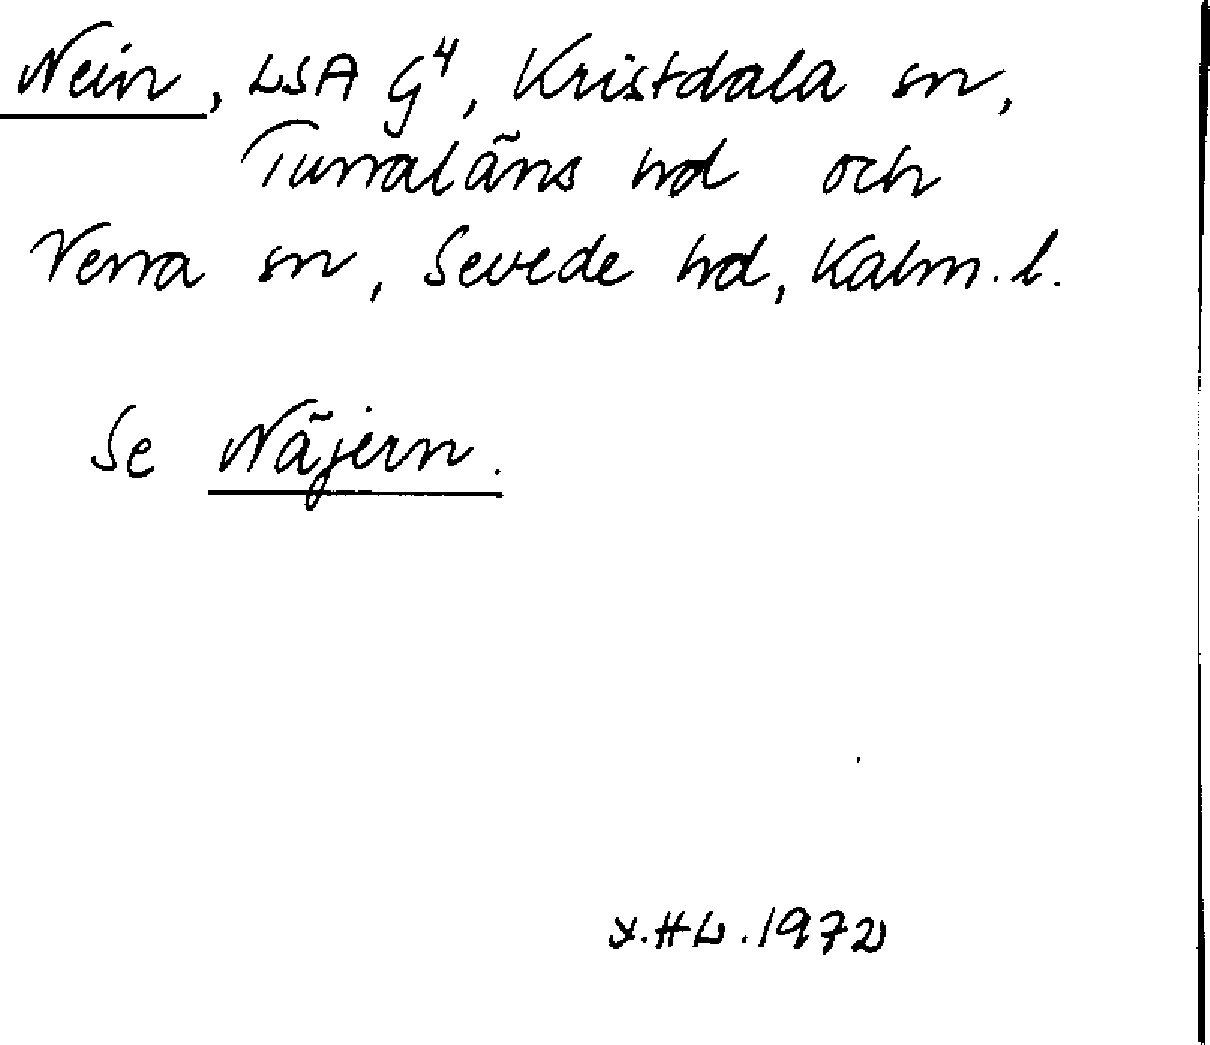 Nein, LSA G⁴, Kristdala sn,
Tunaläns hd och
Vena sn, Sevede hd, Kalm. l.
Se Näjern.
1972